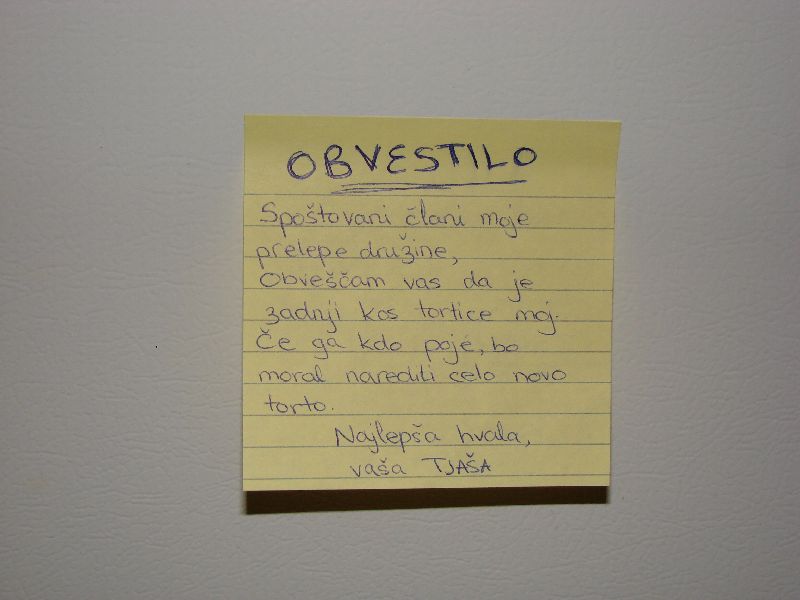 OBVESTILO
Spoštovani člani moje
prelepe družine,
Obveščam vas da je
zadnji kos tortice moj.
Če ga kdo poje, bo
moral narediti celo novo
torto.
Najlepša hvala,
vaša TJAŠA